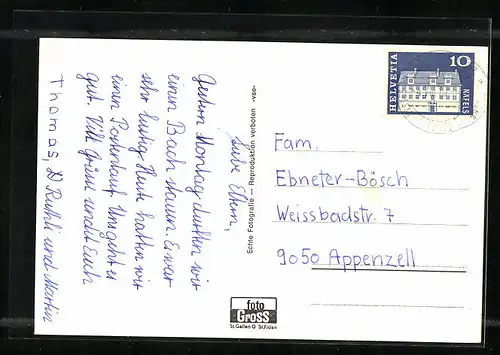 Liebe Eltern,
Gestern Montag durften wir
einen Bach stauen. Es war
sehr lustig. Heute hatten wir
einen Postenlauf. Uns geht es
gut. Viele Grüsse sendet Euch
Thomas, Ruthli und Martin
Echte Fotografie — Reproduktion verboten -vse-
foto
GROSS
St.Gallen O St.Fiden
HELVETIA
10
NÄFELS
Fam.
Ebneter-Bösch
Weissbadstr. 7
9050 Appenzell